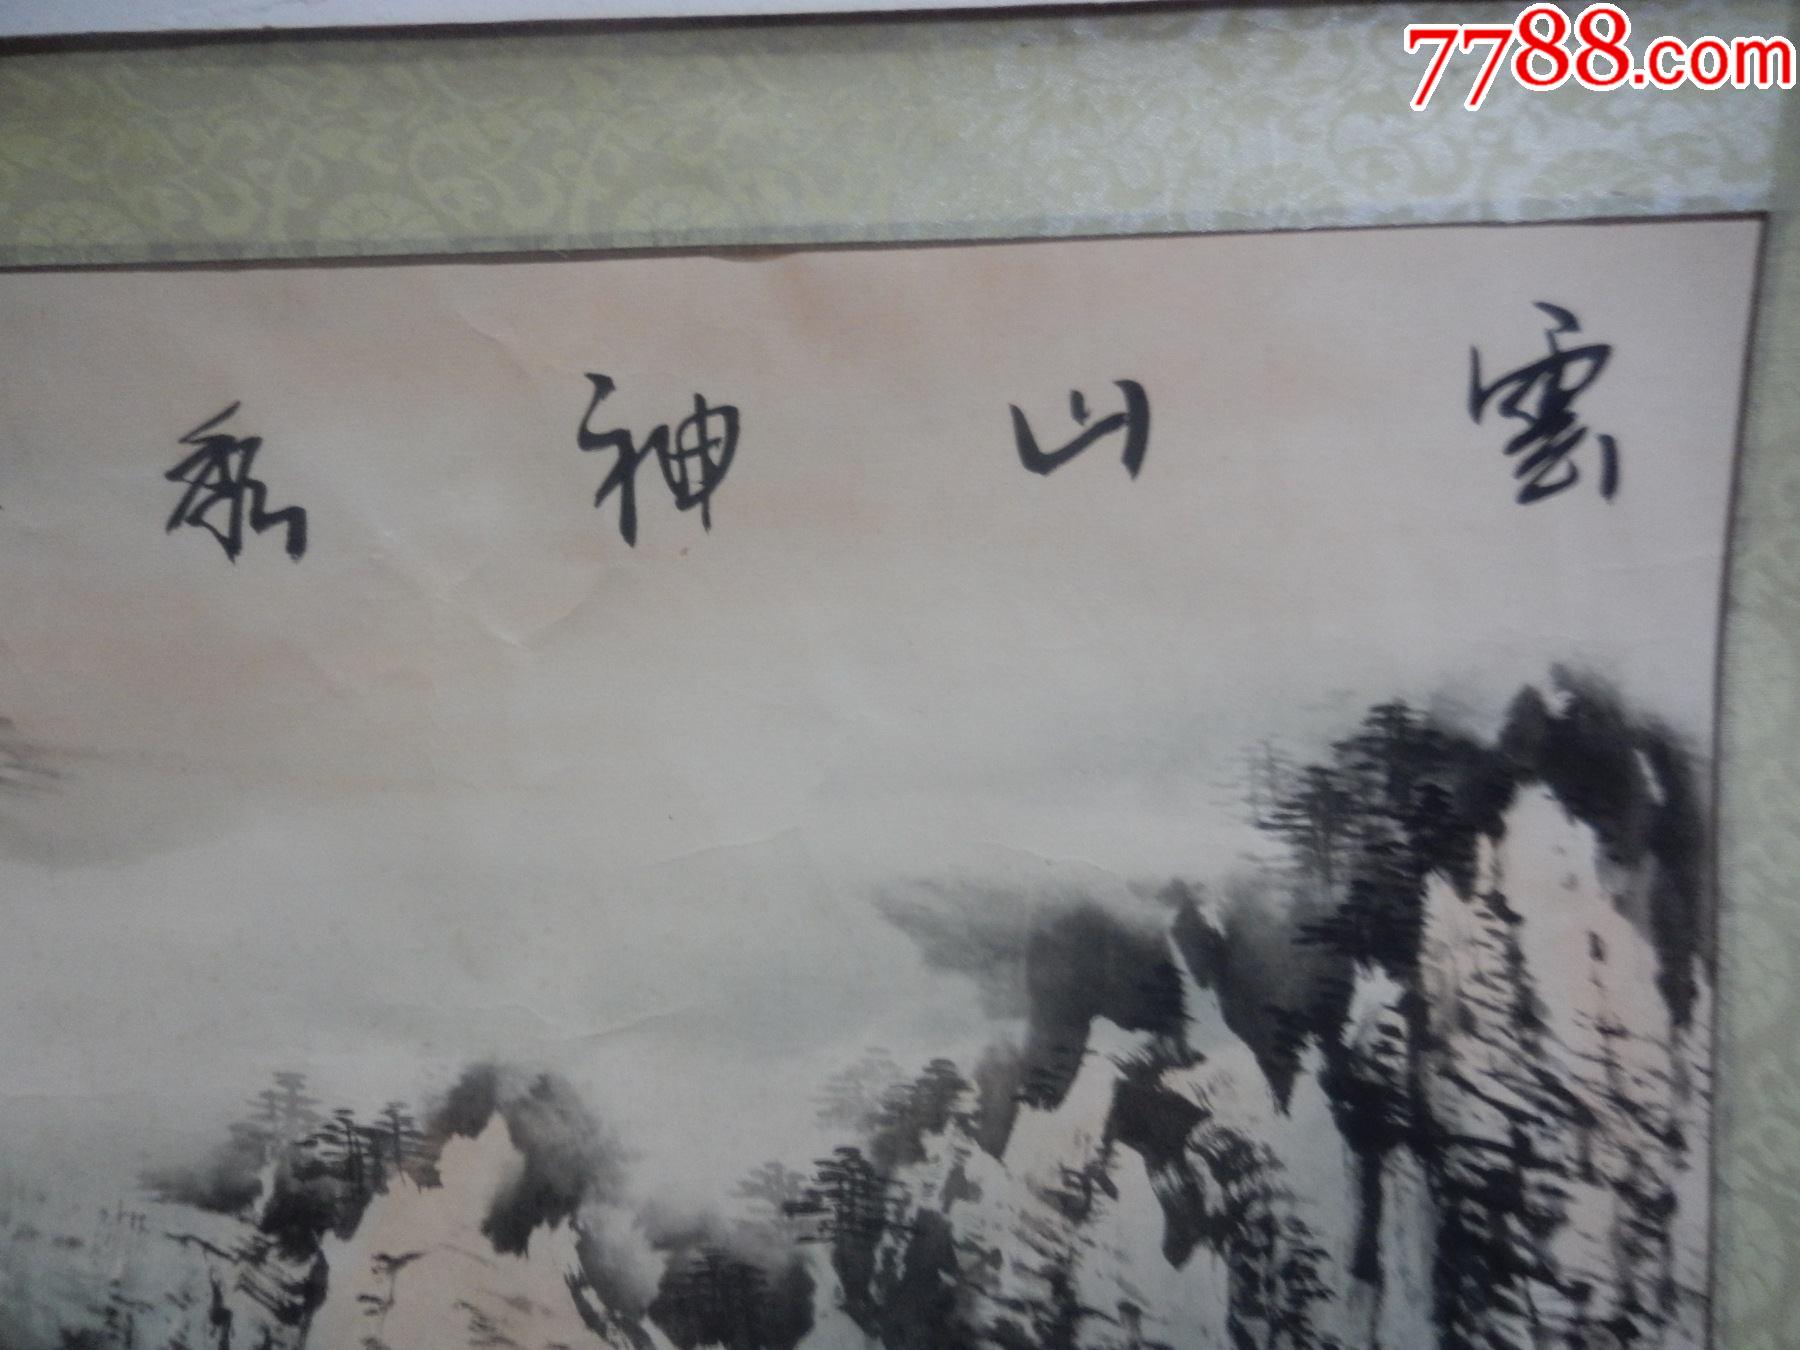 7788.com
雲山神秀